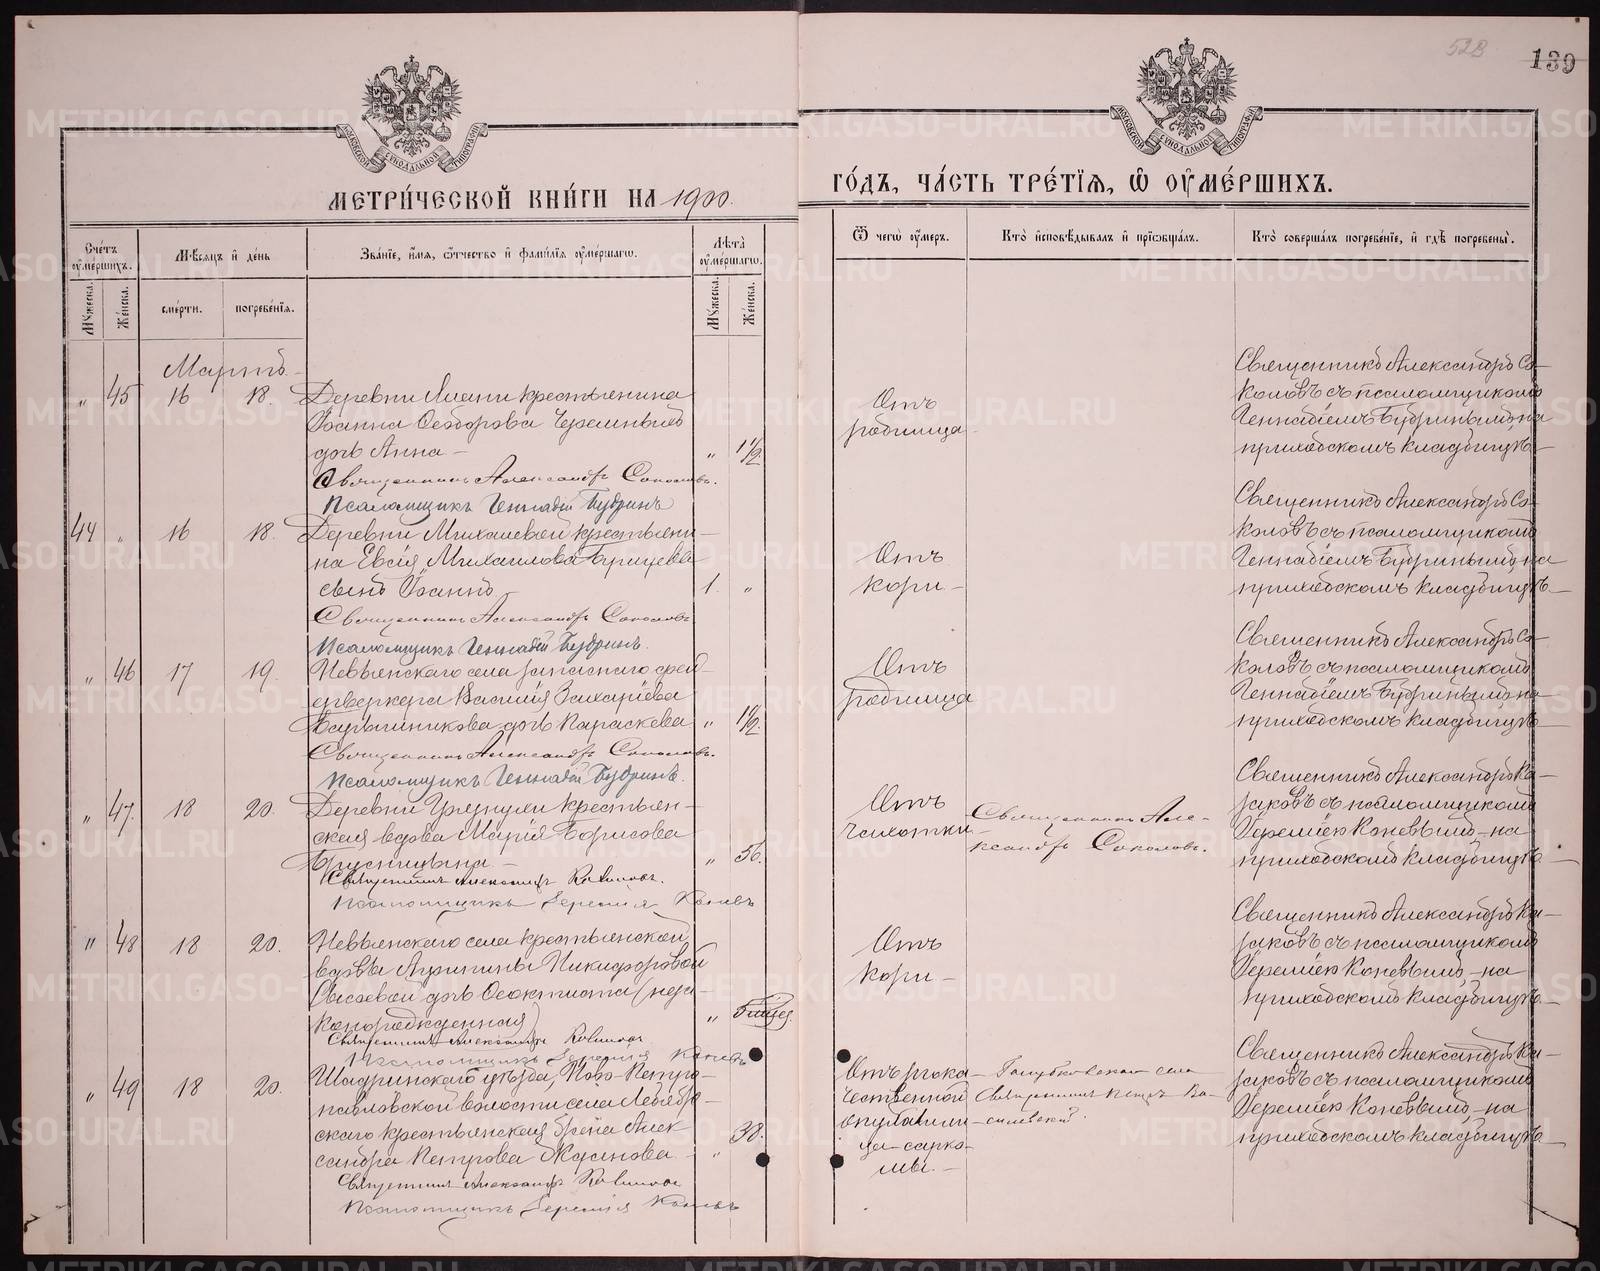 52в
139
МЕТРИ́ЧЕСКОЙ КНИ́ГИ НА 1900.
ГО́ДЪ, ЧА́СТЬ ТРЕ́ТІѦ, Ѡ҆ ОУ҆МЕ́РШИХЪ.
Сче́тъ оу҆ме́ршихъ.
Мѣ́сяцъ и҆ де́нь
Зва́ніе, и҆́мѧ, ѻ҆́тчество и҆ фами́лїѧ оу҆ме́ршагѡ.
Лѣ́та оу҆ме́ршагѡ.
Ѿ чегѡ̀ оу҆́меръ.
Кто̀ и҆сповѣ́дывалъ и҆ прїѡбща́лъ.
Кто̀ соверша́лъ погребе́нїе, и҆ гдѣ̀ погребены̀.
Мꙋ́жеска.
Же́нска.
сме́рти.
погребе́нїѧ.
Мꙋ́жеска.
Же́нска.
Мартъ
„ 45 16 18. Деревни крестьянина
Іоанна Ѳеодорова Черемныхъ
дочь Анна – „ 1½
Священникъ Александръ Соколовъ.
Псаломщикъ Геннадій Бубринъ
Отъ
родимца
Священникъ Александръ Со-
коловъ съ псаломщикомъ
Геннадіемъ Бубринымъ, на
приходскомъ кладбищѣ –
44 „ 16 18. Деревни Михалевой крестьяни-
на Евсія Михаилова
сынъ Іоаннъ 1. „
Священникъ Александръ Соколовъ
Псаломщикъ Геннадій Бубринъ.
Отъ
кори –
Священникъ Александръ Со-
коловъ съ псаломщикомъ
Геннадіемъ Бубринымъ, на
приходскомъ кладбищѣ. –
„ 46 17 19. Невьянскаго села запаснаго фей-
ерверкера Василія Захаріева
дочь Параскева „ 1½.
Священникъ Александръ Соколовъ.
Псаломщикъ Геннадій Бубринъ.
Отъ
родимца
Священникъ Александръ Со-
коловъ съ псаломщикомъ
Геннадіемъ Бубринымъ на
приходскомъ кладбищѣ –
„ 47. 18 20. Деревни крестьян-
ская вдова Марія Борисова
Брусницына – „ 56.
Священникъ Александръ
Псаломщикъ Іеремія Коневъ
Отъ
чахотки
Священникъ Але-
ксандръ Соколовъ.
Священникъ Александръ Ка-
заковъ съ псаломщикомъ
Іереміею Коневымъ – на
приходскомъ кладбищѣ –
„ 48 18 20. Невьянскаго села крестьянской
вдовы Агрипины Никифоровой
дочь Ѳеоктиста (неза-
коннорожденная) „
Священникъ Александръ
Псаломщикъ Іеремія Коневъ
Отъ
кори –
Священникъ Александръ Ка-
заковъ съ псаломщикомъ
Іереміею Коневымъ, – на
приходскомъ кладбищѣ. –
„ 49 18 20. Шадринскаго уѣзда, Ново-Петро-
павловской волости села
скаго крестьянская жена Алек-
сандра Петрова Жданова – „ 38.
Священникъ Александръ
Псаломщикъ Іеремія Коневъ
Отъ злока-
чественной
сарко-
мы. –
села
Священникъ Петръ Ва-
Священникъ Александръ Ка-
заковъ съ псаломщикомъ
Іереміею Коневымъ, – на
приходскомъ кладбищѣ
METRIKI.GASO-URAL.RU